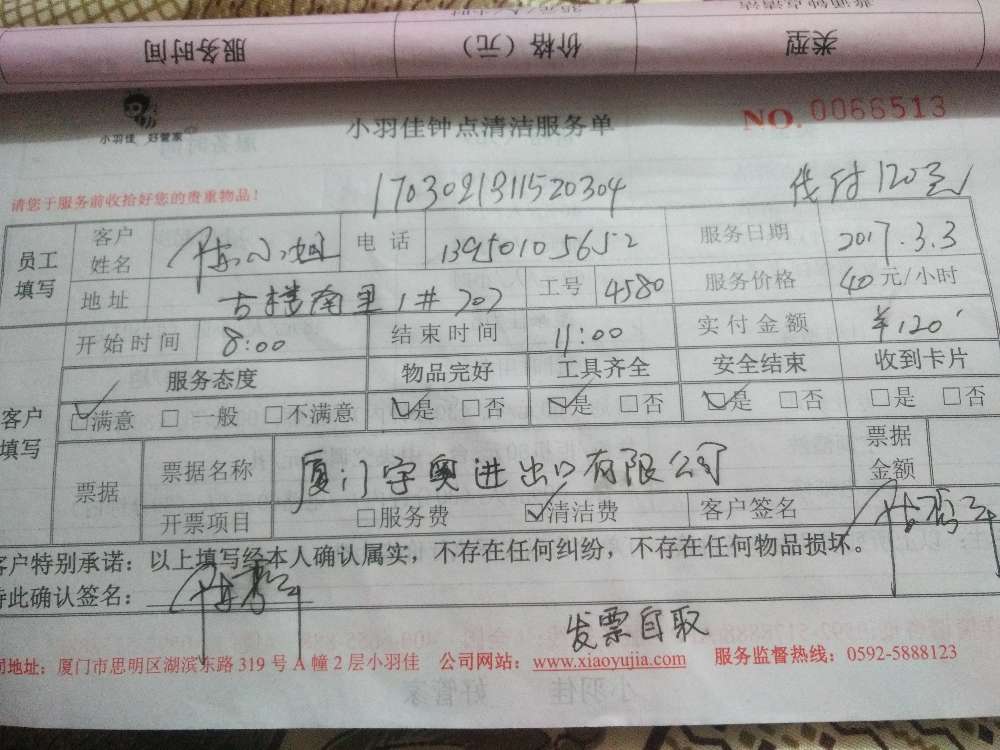 服务时间 价格（元） 类型
小羽佳 好管家
小羽佳钟点清洁服务单
NO. 0066513
请您于服务前收拾好您的贵重物品！
1703021911520304 代付120元
员工填写 客户姓名 陈小姐 电话 13950105652 服务日期 2017.3.3
地址 古楼南里1#202 工号 4580 服务价格 40元/小时
开始时间 8:00 结束时间 11:00 实付金额 ¥120
客户填写 服务态度 物品完好 工具齐全 安全结束 收到卡片
☑满意 □一般 □不满意 ☑是 □否 ☑是 □否 ☑是 □否 □是 □否
票据 票据名称 厦门宇奥进出口有限公司 票据金额
开票项目 □服务费 ☑清洁费 客户签名
客户特别承诺：以上填写经本人确认属实，不存在任何纠纷，不存在任何物品损坏。
特此确认签名：
发票自取
司地址：厦门市思明区湖滨东路319号A幢2层小羽佳 公司网站：www.xiaoyujia.com 服务监督热线：0592-5888123